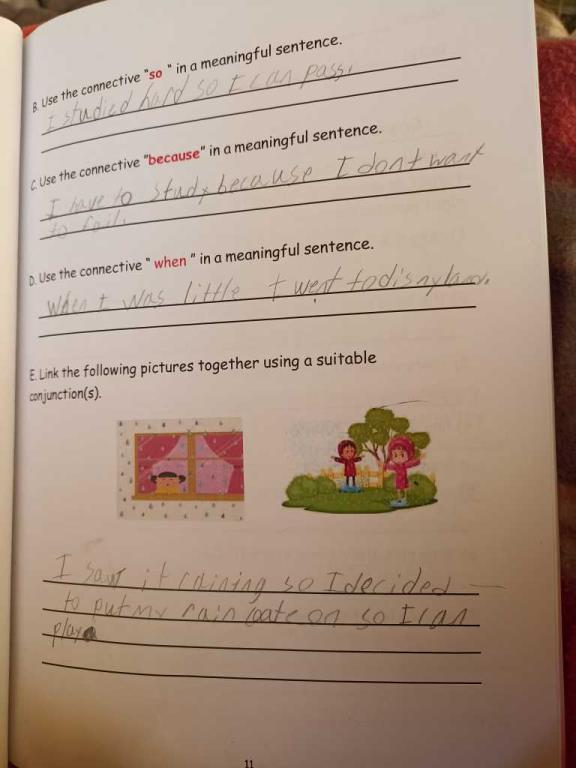 B. Use the connective "so " in a meaningful sentence.
I studied hard so I can pass.
C. Use the connective "because" in a meaningful sentence.
I have to study because I dont want
to fail.
D. Use the connective " when " in a meaningful sentence.
When I was little I went to disnyland.
E. Link the following pictures together using a suitable
conjunction(s).
I saw it raining so I decided
to put my rain coate on so I can
play
11